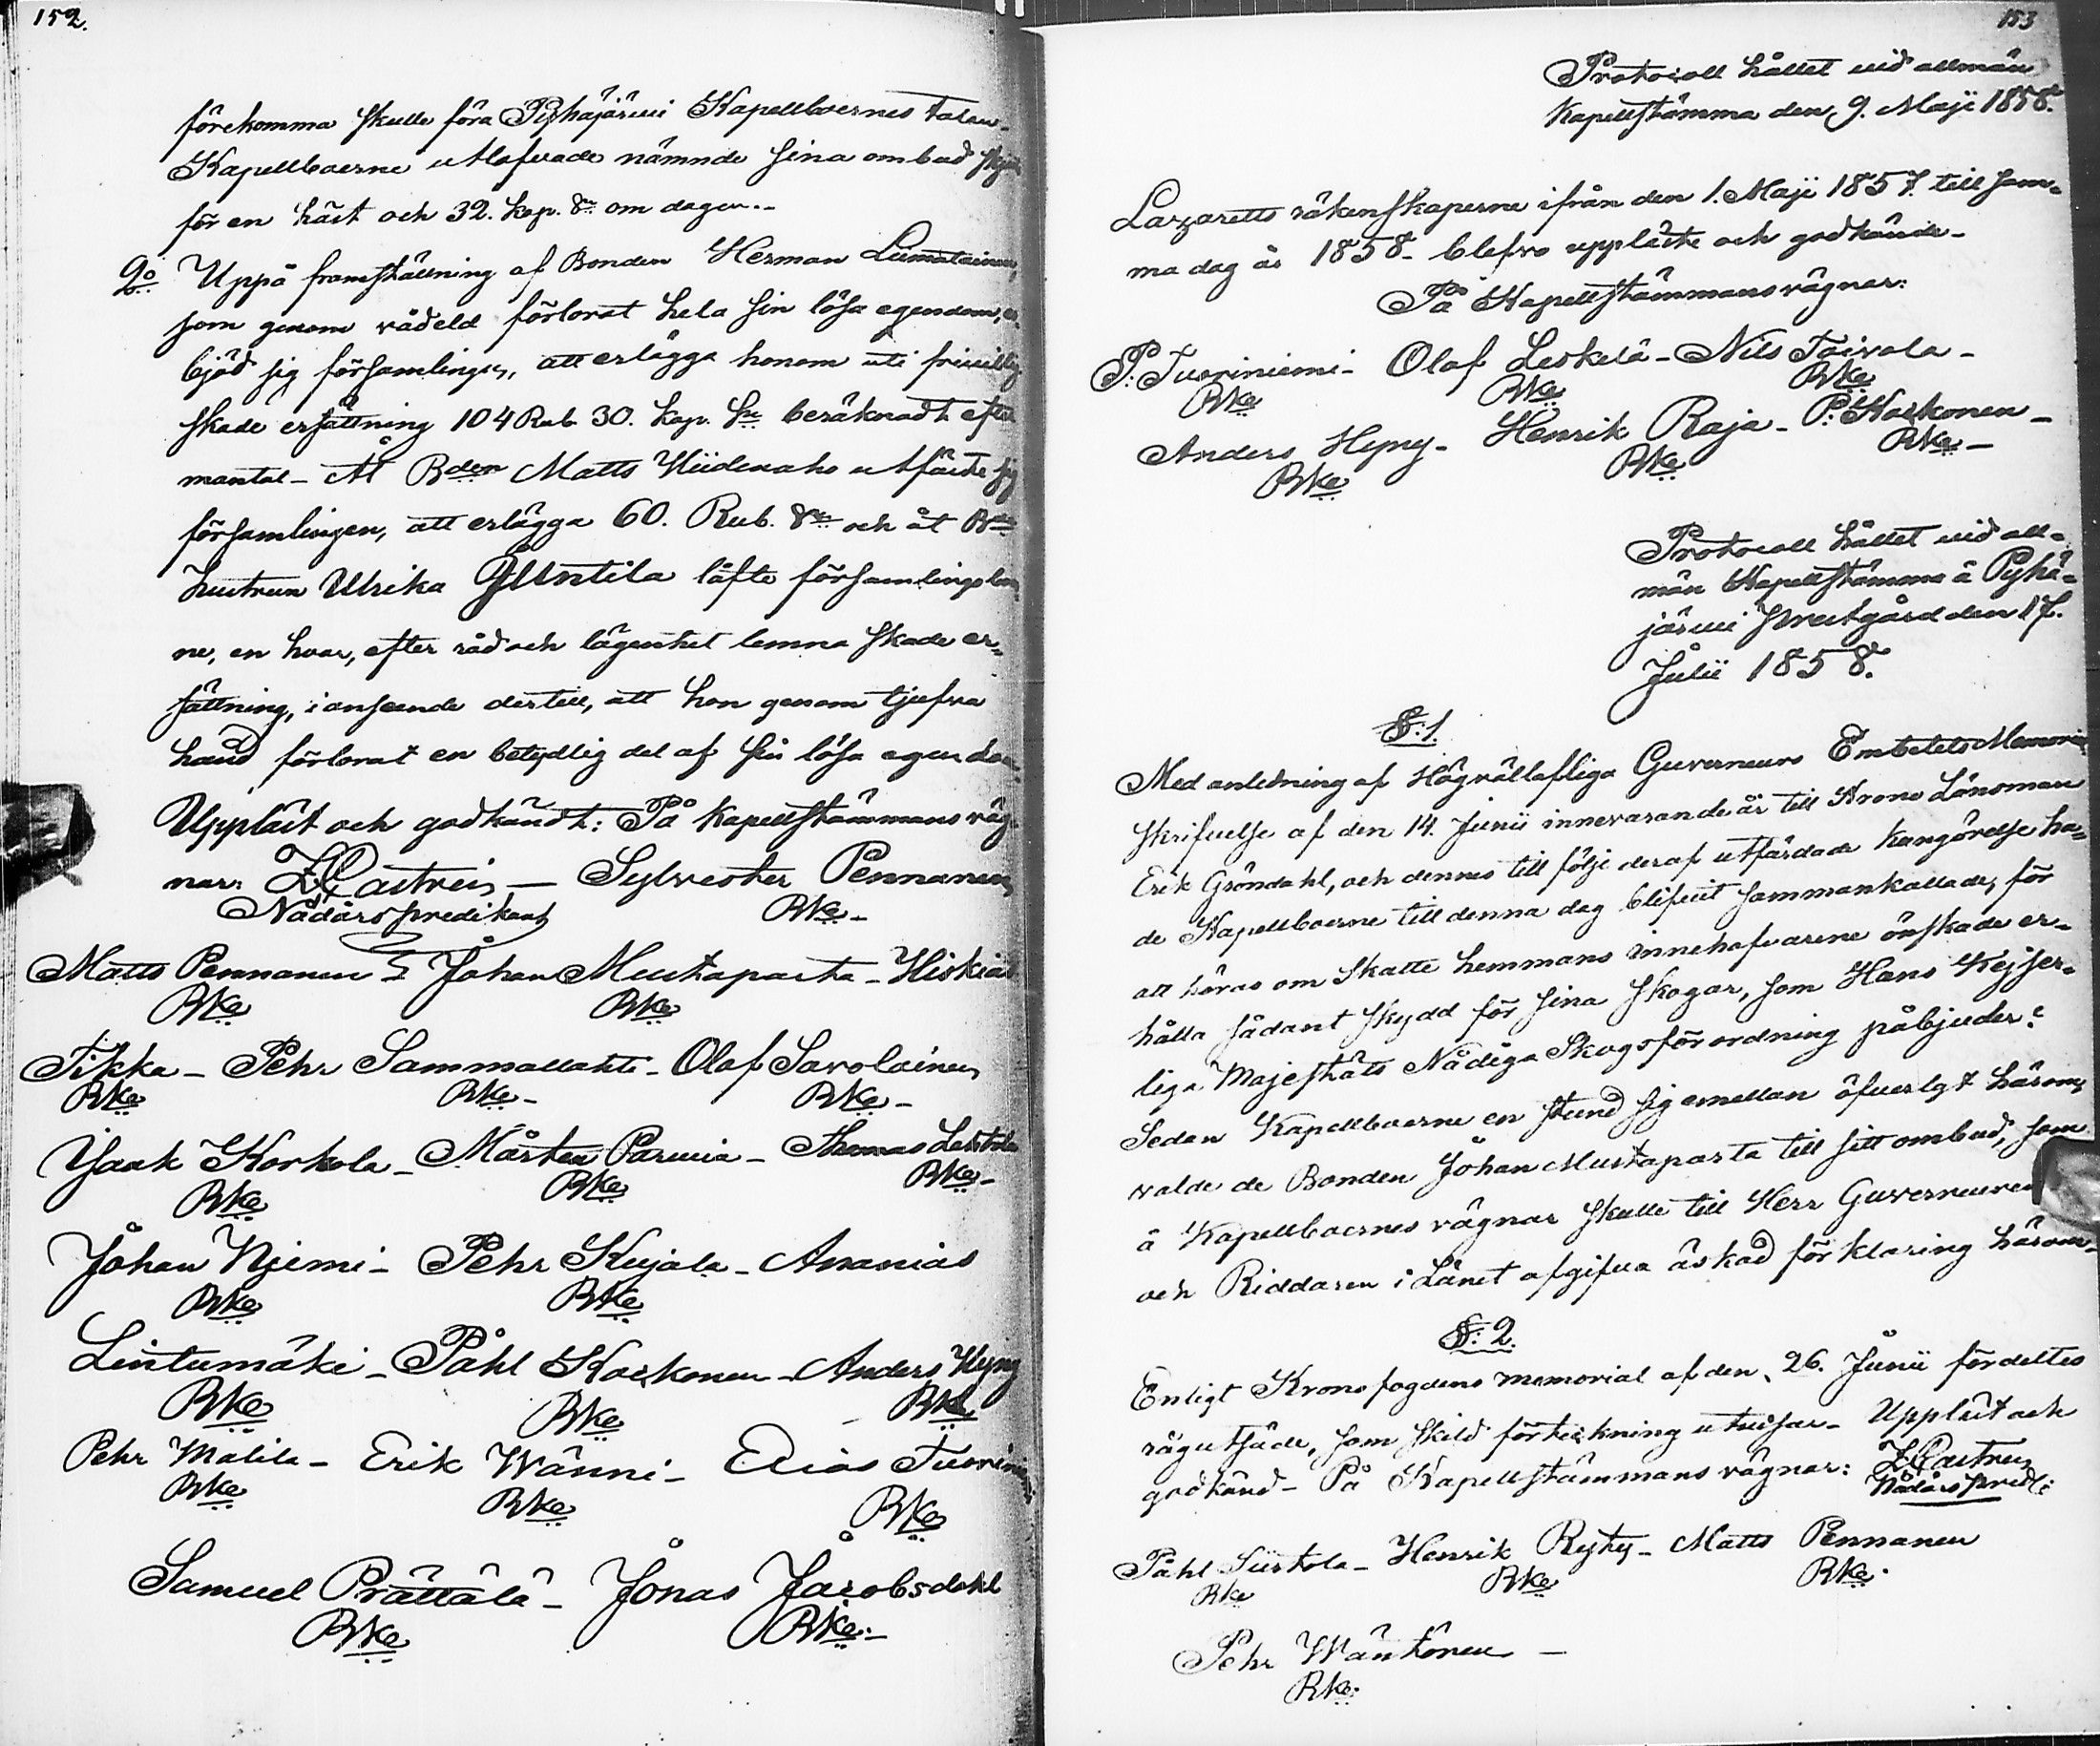 152.
förekomma skulle föra Pyhäjärvi Kapellboernes talan_
Kapellboerne utlofvade nämnde sina ombud
för en häst och 32. kop. Sr om dagen._
9o Uppå framställning af Bonden Herman Liimatainen,
som genom vådeld förlorat hela sin lösa egendom,
bjöd sig församlingen, att erlägga honom uti frivillig
skade ersättning 104 Rub. 30. kop. Sr beräknadt efter
mantal_ At Bden Matts Hiidenaho utfäste sig
församlingen, att erlägga 60. Rub. Sr och åt Bde
hustrun Ulrika Anttila löfte församlingsbo
ne, en hvar, efter råd och lägenhet lemna skade er=
sättning, i anseende dertill, att hon genom tjufva
hand förlorat en betydlig del af sin lösa egendom
Uppläst och godkändt: På kapellstämmans väg
nar: ZCastrén — Sylvester Pennanen
Nådårspredikant Bke_
Matts Pennanen _ Johan Mustaparta _ Hiskias
Bke Bke
Tikka _ Pehr Sammallahti _ Olof Savolainen
Bke Bke_ Bke_
Isaak Korkola _ Mårten Parvia _ Thomas Leskelä
Bke Bke Bke_
Johan Njemi _ Pehr Kujala _ Ananias
Bke Bke
Lintumäki _ Påhl Koskonen _ Anders Hyny
Bke Bke Bke
Pehr Malila _ Erik Wänni _ Elias Tuoriniemi
Bke Bke Bke
Samuel Prättälä _ Jonas Jacobsdahl
Bke Bke._
153
Protocoll hållet vid allmän
Kapellstämma den 9. Maji 1858.
Lazaretts räkenskaperne ifrån den 1. Maji 1857. till sam=
ma dag år 1858_ blefvo uppläste och godkände_
På Kapellstämmans vägnar:
P. Tuoriniemi_ Olof Leskelä_ Nils Toivola_
Bke Bke Bke
Anders Hyny_ Henrik Raja_ P. Koskonen_
Bke Bke Bke_
Protocoll hållet vid all=
män Kapellstämma å Pyhä=
järvi Prestgård den 17.
Julii 1858.
§: 1.
Med anledning af Högvällofliga Guverneurs Embetets Memorial
skrifvelse af den 14. Junii innevarande år till Krono Länsman
Erik Gröndahl, och dennes till följe deraf utfärdade kungörelse ha=
de Kapellboerne till denna dag blifvit sammankallade, för
att höras om Skatte hemmans innehafvarene önskade er=
hålla sådant skydd för sina skogar, som Hans Kejser=
liga Majestäts Nådiga Skogsförordning påbjuder?
Sedan Kapellboerne en stund sig emellan öfverlgt härom,
valde de Bonden Johan Mustaparta till sitt ombud, som
å Kapellboernes vägnar skulle till Herr Guverneuren
och Riddaren i Länet afgifva äskad förklaring härom_
§: 2.
Enligt Krono fogdens memorial af den 26. Junii fördeltes
rågutsäde, som skild förteckning utvisar_ Uppläst och
godkänd_ På Kapellstämmans vägnar: ZCastrén
Nådårspred:
Påhl Siirtola_ Henrik Ryhy_ Matts Pennanen
Bke Bke Bke.
Pehr Wäntönen —
Bke.